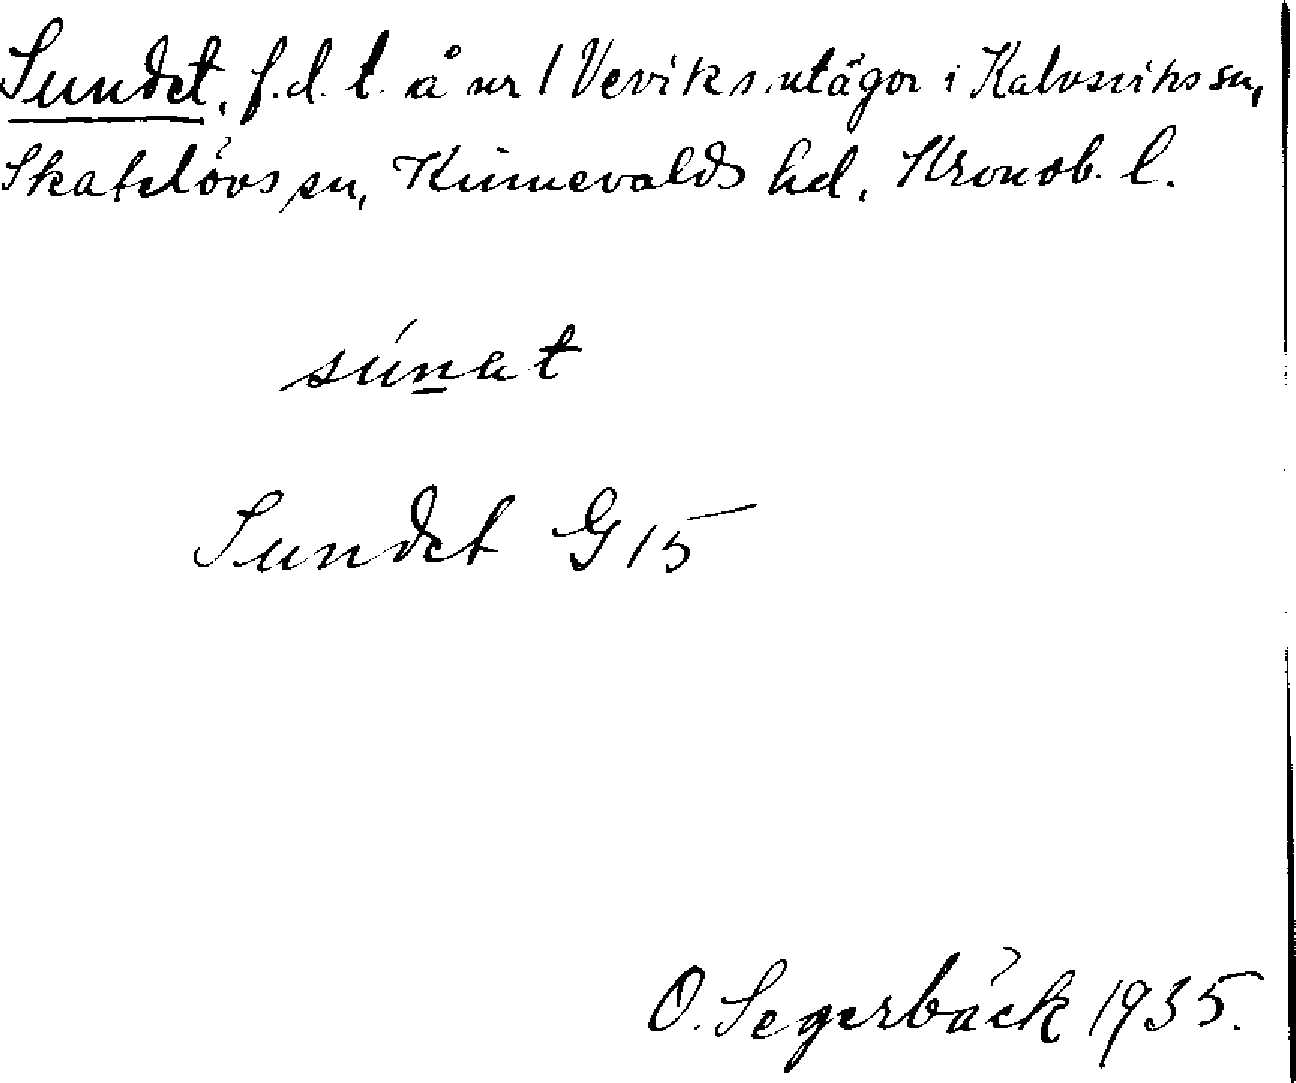 Sundet, f.d. t. å nr 1 Veviks utägor i Kalvsviks sn,
Skatelövs sn, Kinnevalds hd, Kronob. l.
súnat
Sundet G 15
O. Segerbäck 1935.